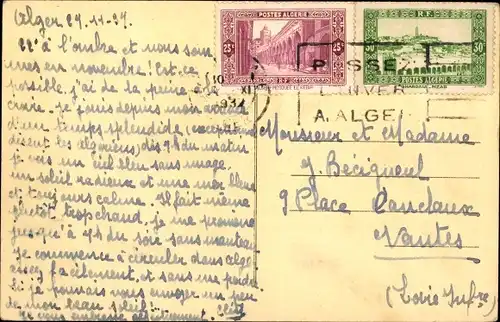 Alger 27.11.37.
22° à l'ombre et nous sommes
en novembre! Est-ce
possible, j'ai de la peine à le
croire. Je jouis depuis mon arrivée
d'un temps splendide (exceptionnel
disent les algériens) dès 7h du matin
je vois un ciel bleu sans nuage,
un soleil radieux et une mer bleue
et toujours calme. Il fait même
plutôt trop chaud, je me promène
jusqu'à 7h du soir sans manteau
Je commence à circuler dans alger
assez facilement, et sans me perdre
Si je pouvais vous envoyer un peu
de mon beau soleil!
Je vous embrasse affectueusement.
25c POSTES ALGERIE
R.F. 50
PASSEZ
L'HIVER
A ALGER
Monsieur et Madame
J Bécigneul
9 Place Canclaux
Nantes
(Loire Infre)